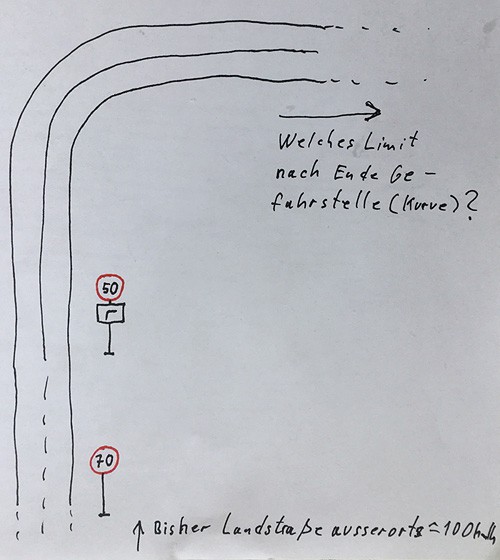 Welches Limit
nach Ende Ge-
fahrstelle (Kurve)?
50
70
Bisher Landstraße ausserorts = 100km/h